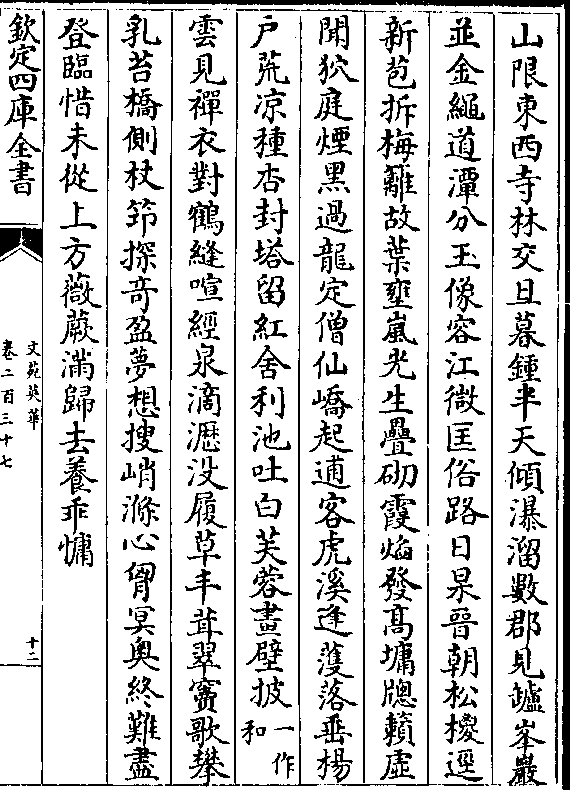 山限東西寺林交旦暮鍾半天傾瀑溜數郡見罏峯巖
並金繩道潭分玉像容江微匡俗路日杲晉朝松櫻逕
新苞拆梅籬故葉壅嵐光生疊砌霞焰發髙墉牕籟虚
聞狖庭煙黒過龍定僧仙嶠起逋客虎溪逢蒦落垂楊
户荒凉種杏封塔留紅舍利池吐白芙蓉畫壁披一作和
雲見禪衣對鶴縫喧經泉滴瀝没履草丰茸翠竇歌攀
乳苔橋側杖笻探竒盈夢想搜峭滌心胷冥奥終難盡
登臨惜未從上方薇蕨滿歸去養乖慵
欽定四庫全書
文苑英華
卷二百三十七
十二